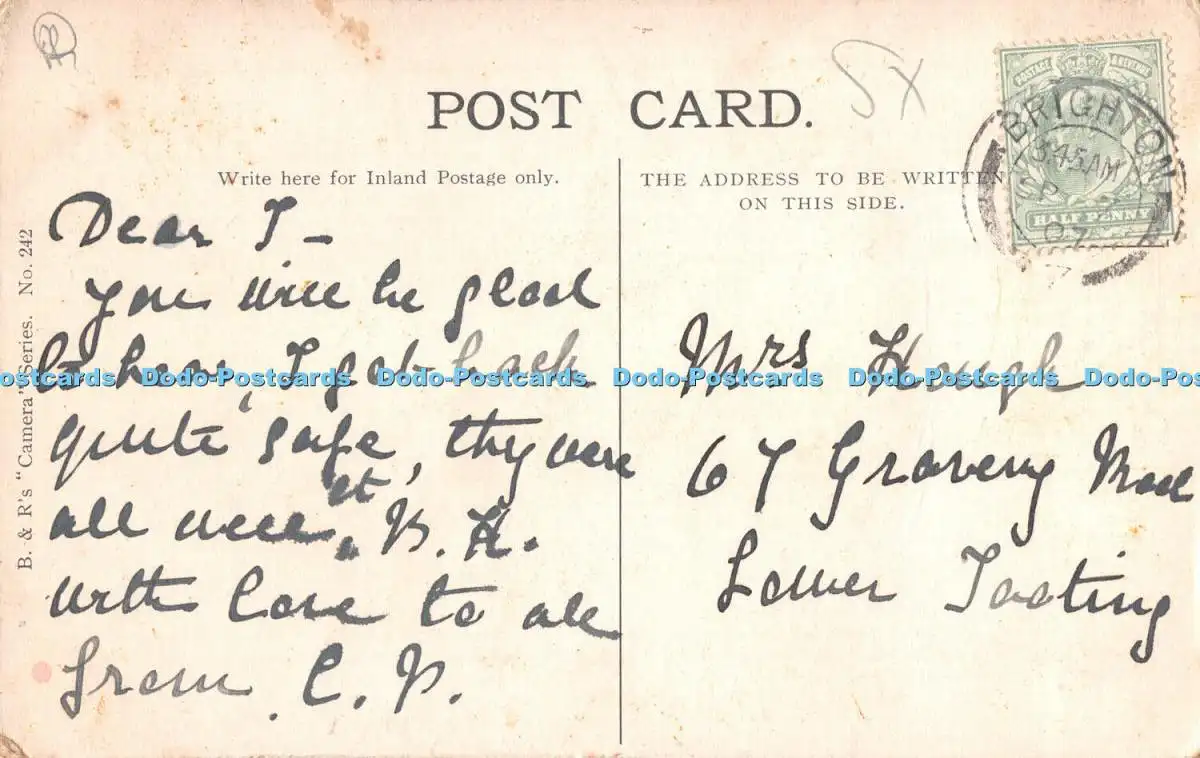 POST CARD.
Write here for Inland Postage only.
THE ADDRESS TO BE WRITTEN
ON THIS SIDE.
POSTAGE REVENUE
HALF PENNY
BRIGHTON
3.45 AM
SP
07
SX
B. & R's "Camera" Series. No. 242
Dear T –
you will be glad
to hear, I got back
quite safe, they were
all well at B. H.
with love to all
from C. P.
Mrs Hough
67 Graveney Road
Lower Tooting
Dodo-Postcards Dodo-Postcards Dodo-Postcards Dodo-Postcards Dodo-Postcards Dodo-Postcards